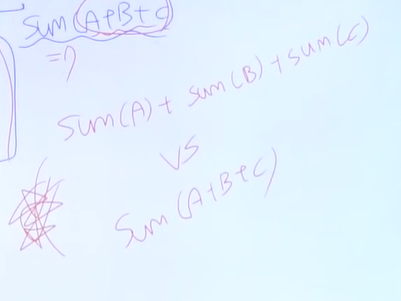 sum(A+B+C)
=)
sum(A) + sum(B) + sum(C)
VS
sum(A+B+C)